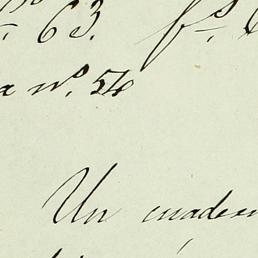 63. fs
a nº. 54
Un cuader